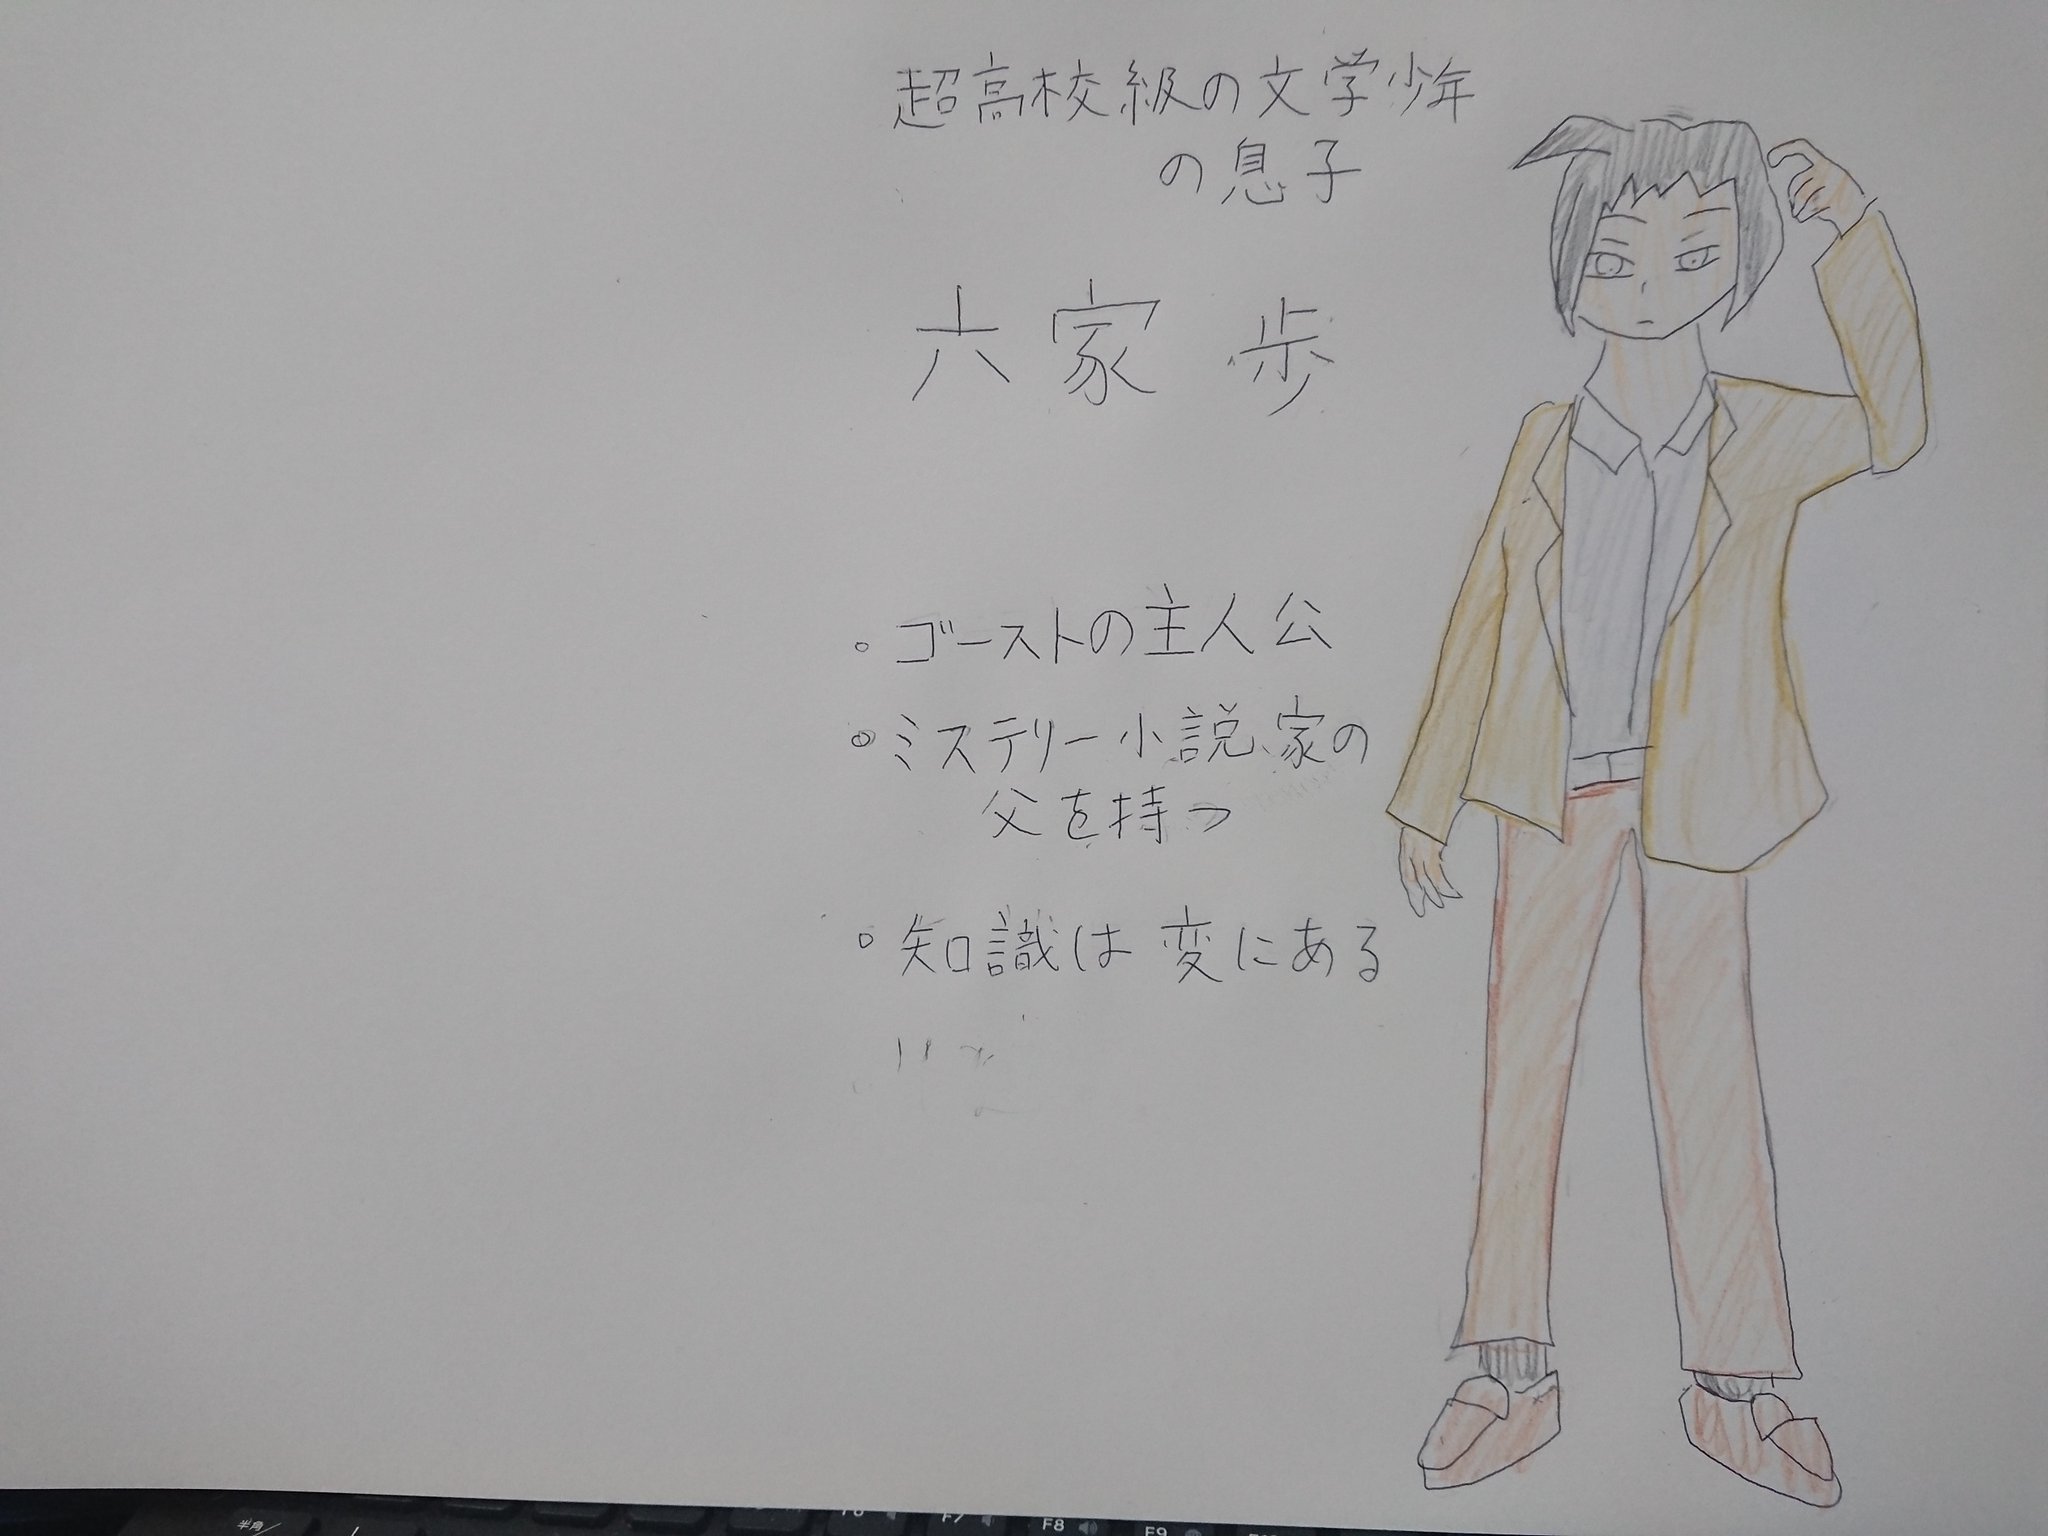 超高校級の文学少年
の息子
六家 歩
。ゴーストの主人公
。ミステリー小説家の
父を持つ
。知識は変にある
半角/
F6
F7
F8
F9